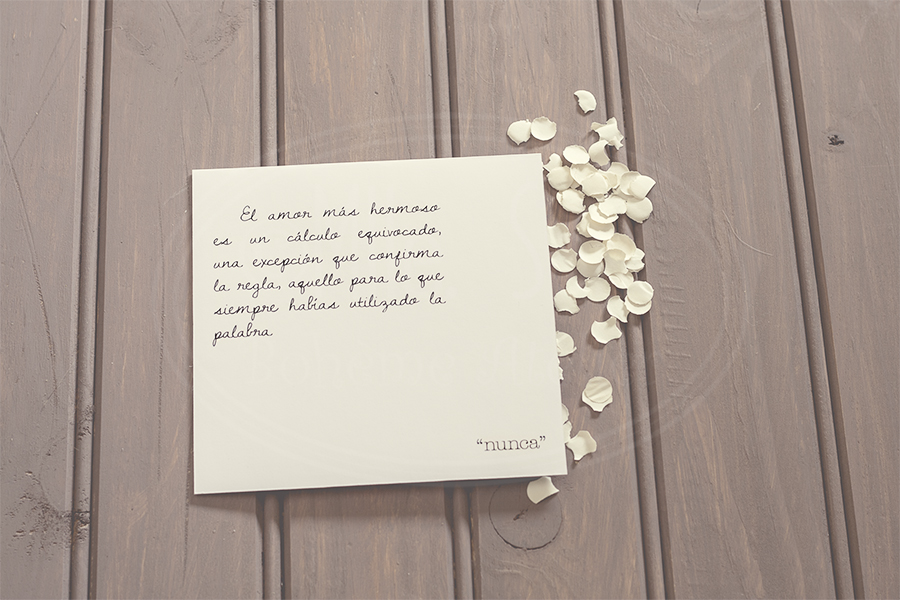 El amor más hermoso
es un cálculo equivocado,
una excepción que confirma
la regla, aquello para lo que
siempre habías utilizado la
palabra
"nunca"